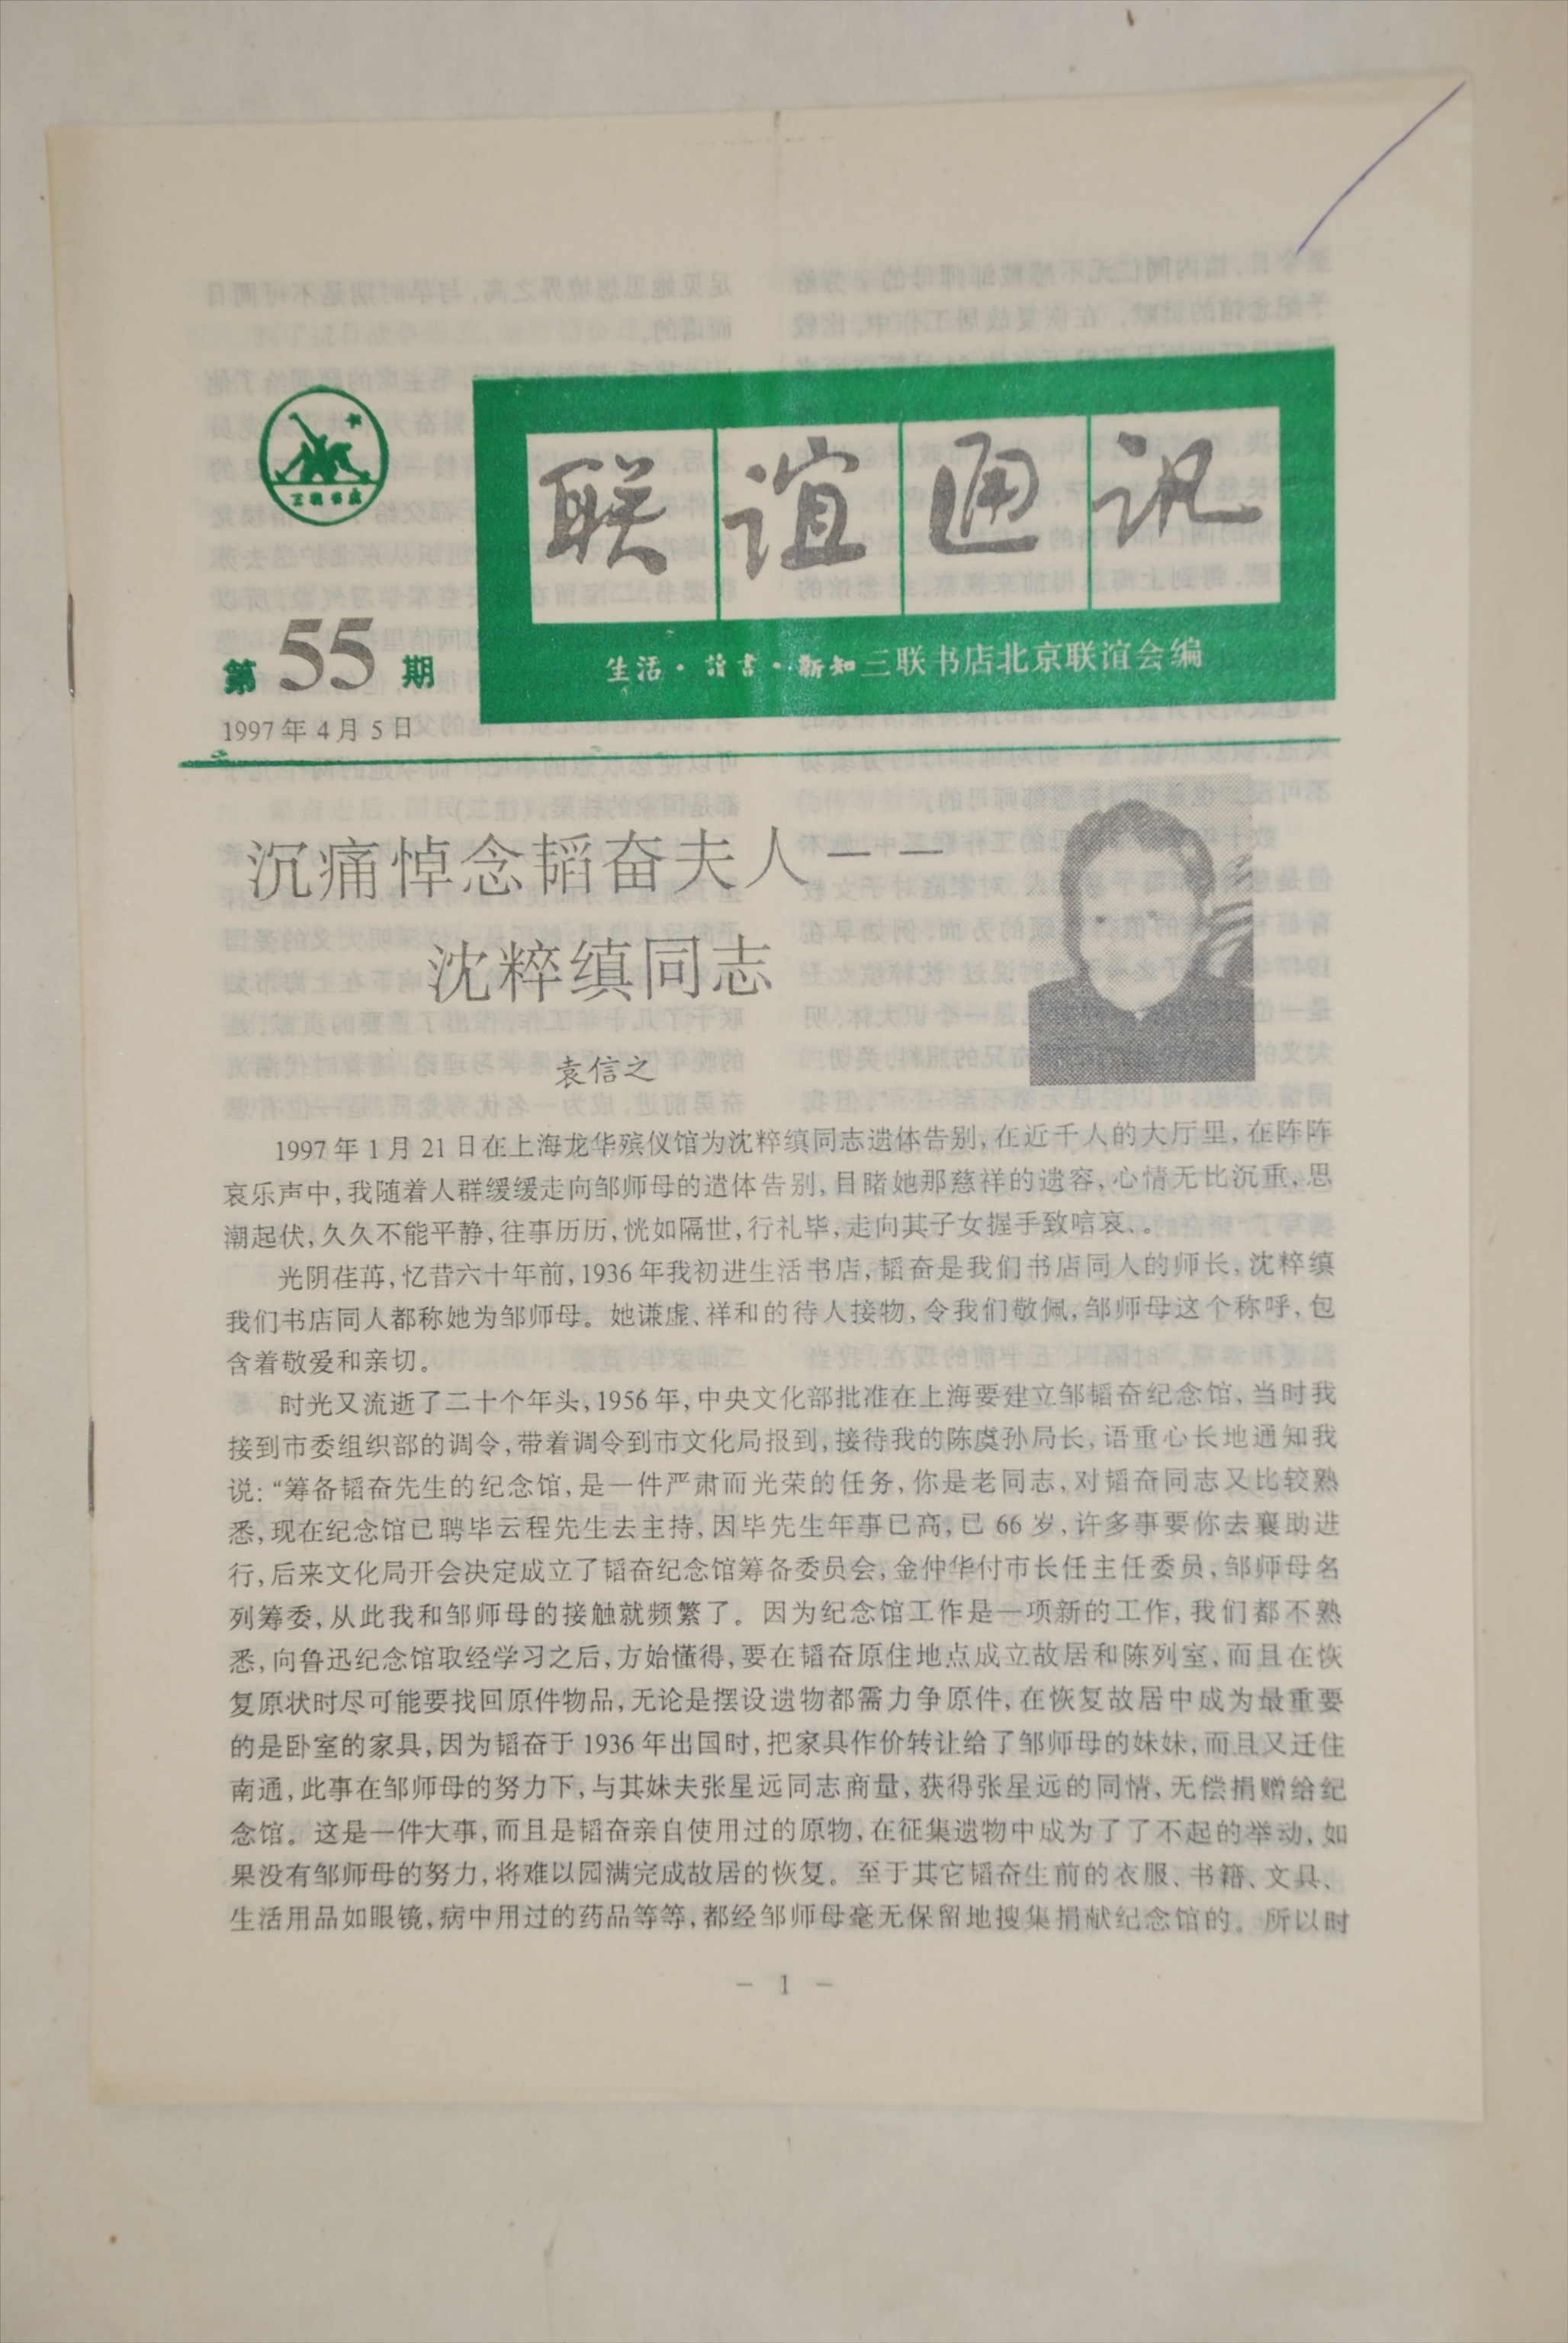 三联书店
联谊通讯
生活·读书·新知三联书店北京联谊会编
第55期
1997年4月5日
沉痛悼念韬奋夫人——
沈粹缜同志
袁信之
1997年1月21日在上海龙华殡仪馆为沈粹缜同志遗体告别,在近千人的大厅里,在阵阵
哀乐声中,我随着人群缓缓走向邹师母的遗体告别,目睹她那慈祥的遗容,心情无比沉重,思
潮起伏,久久不能平静,往事历历,恍如隔世,行礼毕,走向其子女握手致唁哀、。
光阴荏苒,忆昔六十年前,1936年我初进生活书店,韬奋是我们书店同人的师长,沈粹缜
我们书店同人都称她为邹师母。她谦虚、祥和的待人接物,令我们敬佩,邹师母这个称呼,包
含着敬爱和亲切。
时光又流逝了二十个年头,1956年,中央文化部批准在上海要建立邹韬奋纪念馆,当时我
接到市委组织部的调令,带着调令到市文化局报到,接待我的陈虞孙局长,语重心长地通知我
说:“筹备韬奋先生的纪念馆,是一件严肃而光荣的任务,你是老同志,对韬奋同志又比较熟
悉,现在纪念馆已聘毕云程先生去主持,因毕先生年事已高,已66岁,许多事要你去襄助进
行,后来文化局开会决定成立了韬奋纪念馆筹备委员会,金仲华付市长任主任委员,邹师母名
列筹委,从此我和邹师母的接触就频繁了。因为纪念馆工作是一项新的工作,我们都不熟
悉,向鲁迅纪念馆取经学习之后,方始懂得,要在韬奋原住地点成立故居和陈列室、而且在恢
复原状时尽可能要找回原件物品,无论是摆设遗物都需力争原件,在恢复故居中成为最重要
的是卧室的家具,因为韬奋于1936年出国时,把家具作价转让给了邹师母的妹妹,而且又迁住
南通,此事在邹师母的努力下,与其妹夫张星远同志商量,获得张星远的同情,无偿捐赠给纪
念馆。这是一件大事,而且是韬奋亲自使用过的原物,在征集遗物中成为了了不起的举动,如
果没有邹师母的努力,将难以园满完成故居的恢复。至于其它韬奋生前的衣服、书籍、文具、
生活用品如眼镜,病中用过的药品等等,都经邹师母毫无保留地搜集捐献纪念馆的。所以时
- 1 -